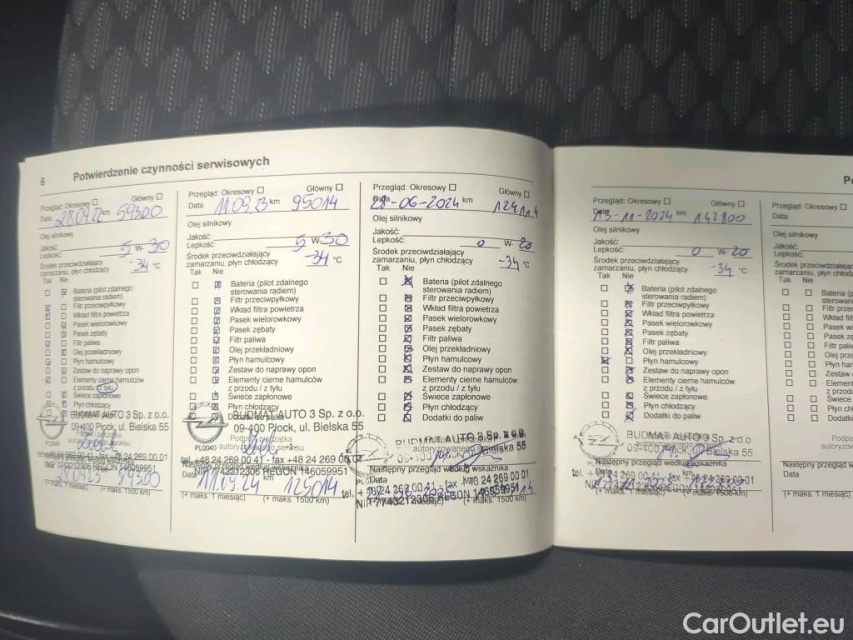 6 Potwierdzenie czynności serwisowych
Przegląd: Okresowy Główny
Data 28.09.22 km 59300
Olej silnikowy
Jakość:
Lepkość: 5 W- 30
Środek przeciwdziałający
zamarzaniu, płyn chłodzący -34 °C
Tak Nie
Bateria (pilot zdalnego
sterowania radiem)
Filtr przeciwpyłkowy
Wkład filtra powietrza
Pasek wielorowkowy
Pasek zębaty
Filtr paliwa
Olej przekładniowy
Płyn hamulcowy
Zestaw do naprawy opon
Elementy cierne hamulców
z przodu / z tyłu
Świece zapłonowe
Płyn chłodzący
BUDMAT AUTO 3 Sp. z o.o.
09-400 Płock, ul. Bielska 55
PL0040
tel. +48 24 269 00 41 - fax +48 24 269 00 01
59300
(+ maks. 1 miesiąc) (+ maks. 1500 km)
Przegląd: Okresowy Główny
Data 11.09.23 km 95014
Olej silnikowy
Jakość:
Lepkość: 5 W- 30
Środek przeciwdziałający
zamarzaniu, płyn chłodzący -34 °C
Tak Nie
Bateria (pilot zdalnego
sterowania radiem)
Filtr przeciwpyłkowy
Wkład filtra powietrza
Pasek wielorowkowy
Pasek zębaty
Filtr paliwa
Olej przekładniowy
Płyn hamulcowy
Zestaw do naprawy opon
Elementy cierne hamulców
z przodu / z tyłu
Świece zapłonowe
Płyn chłodzący
BUDMAT AUTO 3 Sp. z o.o.
09-400 Płock, ul. Bielska 55
PL0040
tel. +48 24 269 00 41 - fax +48 24 269 00 01
NIP 7743212306 REGON 146059951
Data 11.09.24 125014
(+ maks. 1 miesiąc) (+ maks. 1500 km)
Przegląd: Okresowy Główny
Data 28-06-2024 km
Olej silnikowy
Jakość:
Lepkość: 0 W- 20
Środek przeciwdziałający
zamarzaniu, płyn chłodzący -34 °C
Tak Nie
Bateria (pilot zdalnego
sterowania radiem)
Filtr przeciwpyłkowy
Wkład filtra powietrza
Pasek wielorowkowy
Pasek zębaty
Filtr paliwa
Olej przekładniowy
Płyn hamulcowy
Zestaw do naprawy opon
Elementy cierne hamulców
z przodu / z tyłu
Świece zapłonowe
Płyn chłodzący
Dodatki do paliw
BUDMAT AUTO 3 Sp. z o.o.
Bielska 55
Następny przegląd według wskaźnika
Data
tel. +48 24 269 00 41, fax +48 24 269 00 01
NIP 7743212306 REGON 146059951
(+ maks. 1 miesiąc) (+ maks. 1500 km)
Przegląd: Okresowy Główny
Data -11-2024 km 142800
Olej silnikowy
Jakość:
Lepkość: 0 W- 20
Środek przeciwdziałający
zamarzaniu, płyn chłodzący -34 °C
Tak Nie
Bateria (pilot zdalnego
sterowania radiem)
Filtr przeciwpyłkowy
Wkład filtra powietrza
Pasek wielorowkowy
Pasek zębaty
Filtr paliwa
Olej przekładniowy
Płyn hamulcowy
Zestaw do naprawy opon
Elementy cierne hamulców
z przodu / z tyłu
Świece zapłonowe
Płyn chłodzący
Dodatki do paliw
BUDMAT AUTO 3 Sp. z o.o.
09-400 Płock, ul. Bielska 55
Następny przegląd według wskaźnika
(+ maks. 1 miesiąc) (+ maks. 1500 km)
Przegląd: Okresowy
Data
Olej silnikowy
Jakość:
Lepkość:
Środek przeciwdziałający
zamarzaniu, płyn chłodzący
Tak Nie
Następny przegląd
Data
(+ maks. 1 miesiąc)
CarOutlet.eu